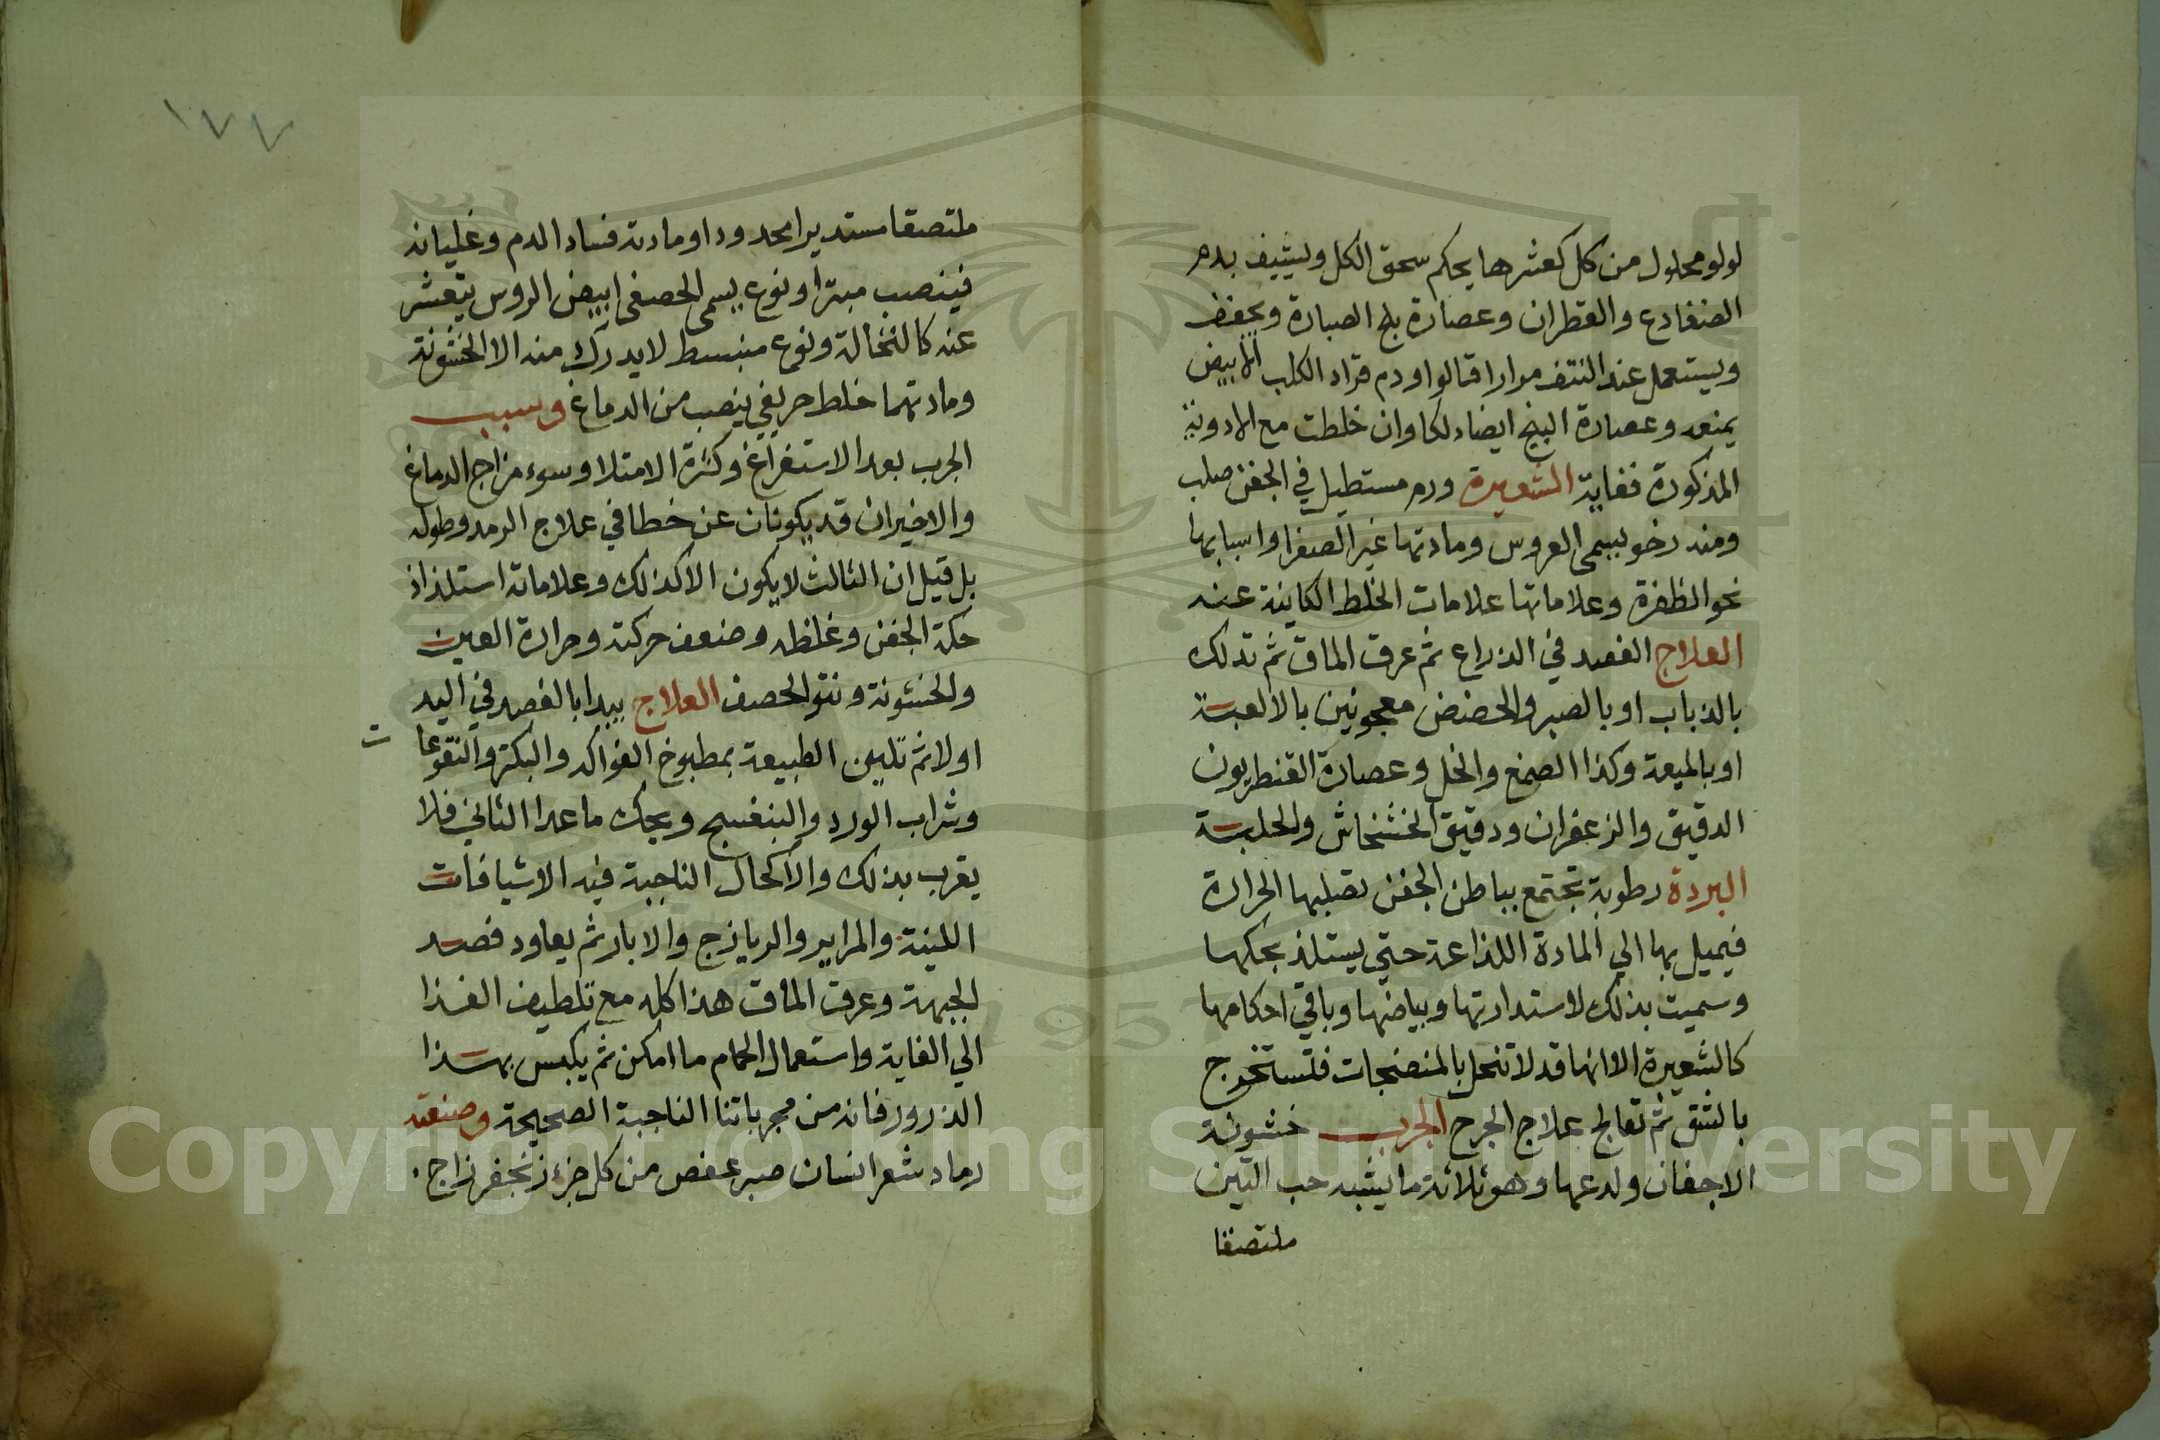 لولو محلول من كل كعشرها يحكم سحق الكل ويشيف بدم
الضفادع والقطران وعصارة بلح الصبارة ويجفف
ويستعمل عند النتف مرارا قالوا ودم قراد الكلب الابيض
يمنعه وعصارة البنج ايضا لكا وان خلطت مع الادوية
المذكورة فغاية الشعيرة ورم مستطيل في الجفن صلب
ومنه رخو يسمى العروس ومادتها غير الصفرا واسبابها
نحو الظفرة وعلاماتها علامات الخلط الكاينة عنه
العلاج الفصد في الذراع ثم عرق الماق ثم تدلك
بالذباب او بالصبر والحضض معجونين بالالعبة
او بالميعة وكذا الصمغ والخل وعصارة القنطريون
الدقيق والزعفران ودقيق الخشخاش والحلبة
البردة رطوبة تجتمع بباطن الجفن تصلبها الحرارة
فيميل بها الي المادة اللذاعة حتي يستلذ بحكها
وسميت بذلك لاستدارتها وبياضها وباقي احكامها
كالشعيرة الا انها قد لا تنحل بالمنضجات فتستخرج
بالشق ثم تعالج علاج الجرح الجرب خشونة
الاجفان ولدعها وهو ثلاثة ما يشبه حب التين
ملتصقا
١٧٧
ملتصقا مستديرا محدودا ومادته فساد الدم وغليانه
فينصب مبترا ونوع يسمى الحصفى ابيض الروس يتقشر
عنه كالنخالة ونوع منبسط لا يدرك منه الا الخشونة
ومادتهما خلط حريفي ينصب من الدماغ وسبب
الجرب بعد الاستفراغ وكثرة الامتلا وسوء مزاج الدماغ
والاخيران قد يكونان عن خطا في علاج الرمد وطوله
بل قيل ان الثالث لا يكون الا كذلك وعلاماته استلذاذ
حكة الجفن وغلظه وضعف حركته وحرارة العين
والخشونة ونتو الحصف العلاج يبدا بالفصد في اليد
اولا ثم تليين الطبيعة بمطبوخ الفواكه والبكتر والنقوعات
وشراب الورد والبنفسج ويحك ما عدا الثاني فلا
يقرب بذلك والاكحال الناجبة فيه الاشيافات
اللينة والمراير والريازج والابار ثم يعاود فصد
الجبهة وعرق الماق هذا كله مع تلطيف الغذا
الي الغاية واستعمال الحمام ما امكن ثم يكبس بهذا
الذرور فانه من مجرباتنا الناجبة الصحيحة وصنعته
رماد شعر انسان صبر عفص من كل جزء زنجفر زاج
Copyright © King Saud University
1957